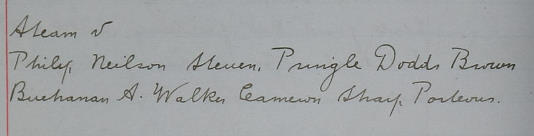 A team v
Philp, Neilson Steven, Pringle Dodds Brown
Buchanan A. Walker Cameron Sharp, Porteous.